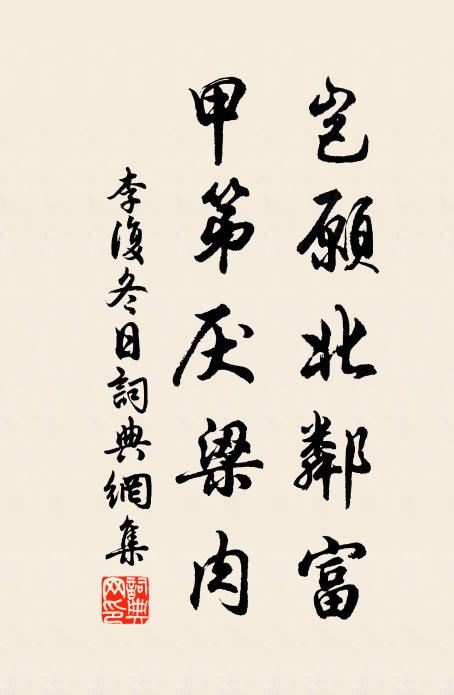 岂願北鄰富
甲第厌粱肉
李復冬日詞典網集
詞典网印